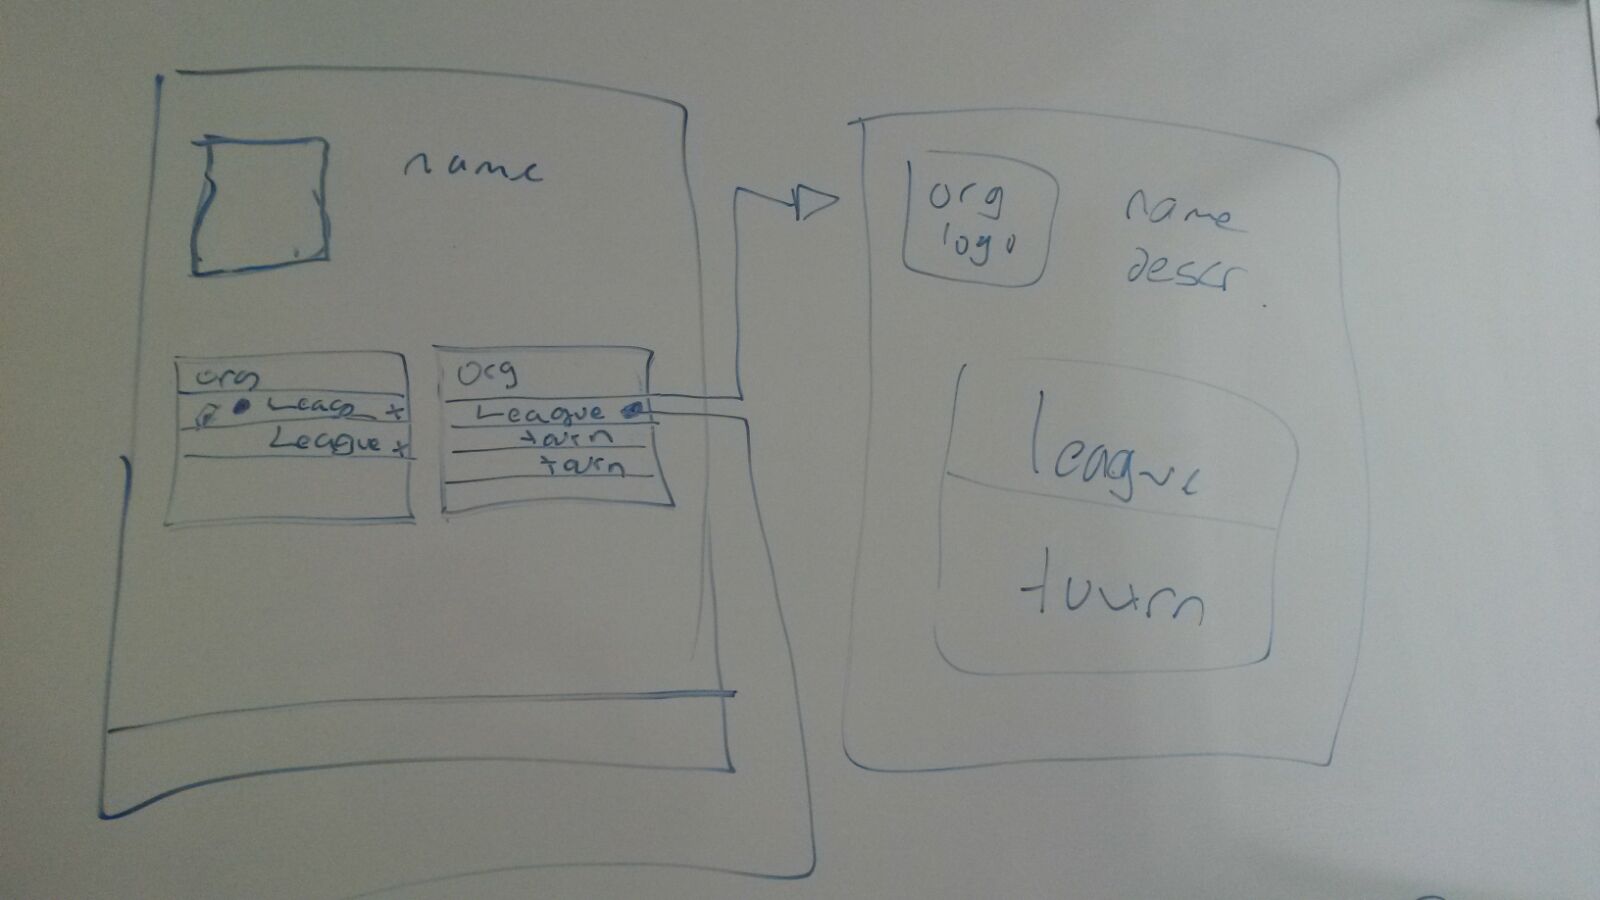 name
org
League +
org
League
tourn
tourn
org
logo
name
descr.
league
tourn